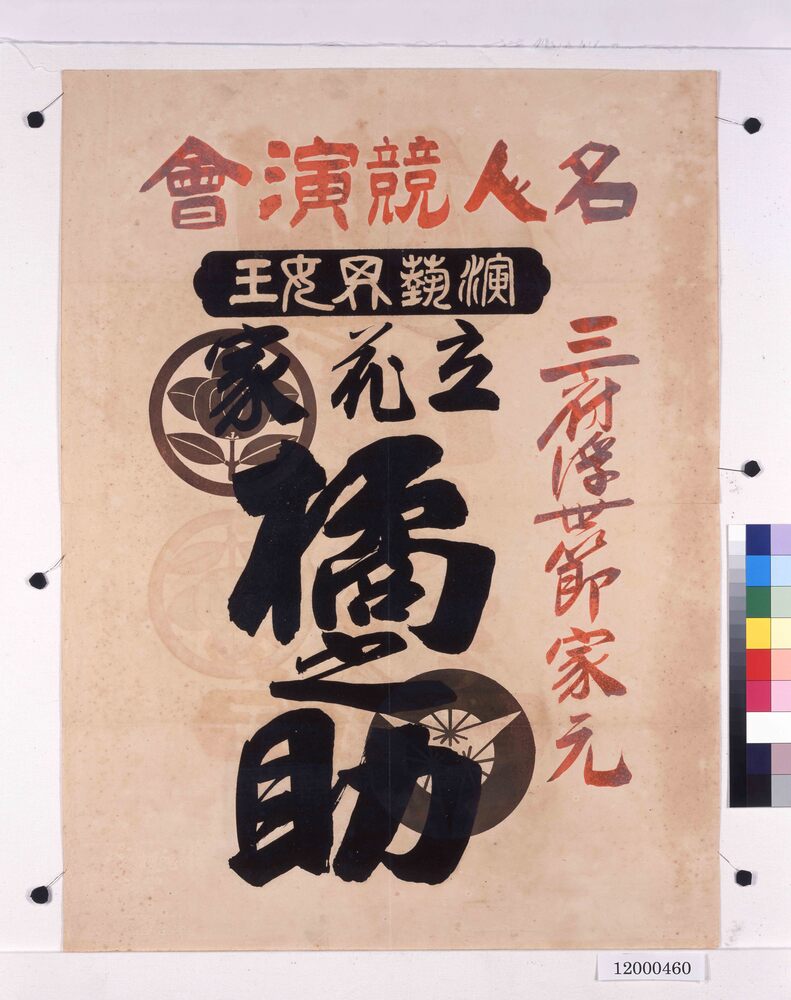 名人競演會
演藝界女王
三府浮世節家元
立花家
橘之助
12000460